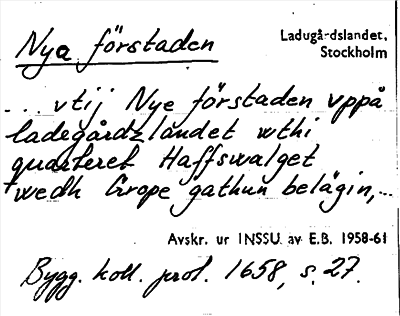 Nya förstaden
Ladugårdslandet,
Stockholm
... vtij Nye förstaden vppå
ladegårdzlandet wthi
quarteret Haffswalget
wedh Grope gathun belägin,...
Avskr. ur INSSU av E.B. 1958-61
Bygg. koll. prot. 1658, s. 27.